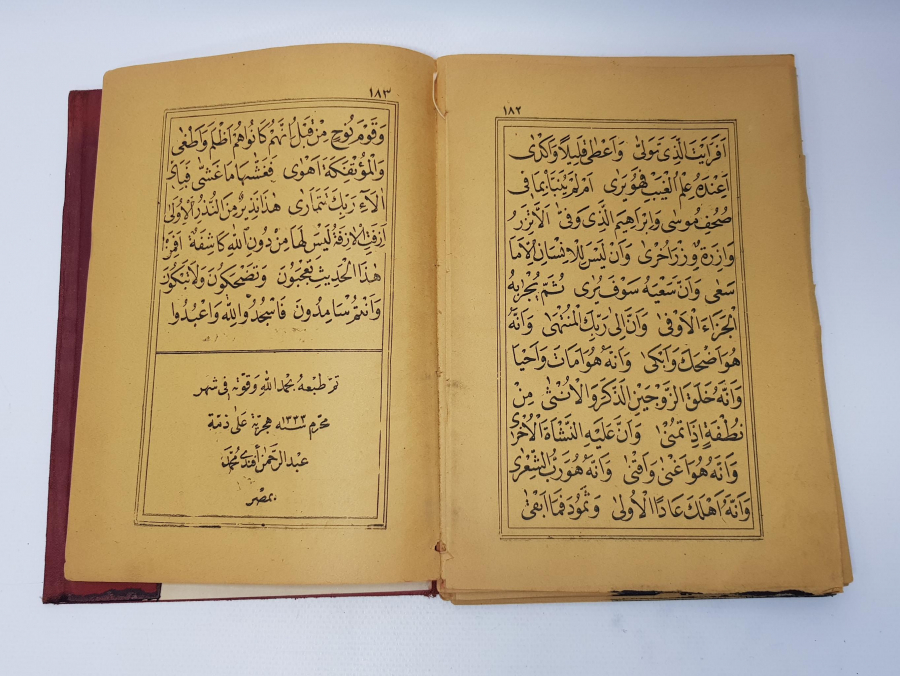 ١٨٢
اَفَرَاَيْتَ الَّذِى تَوَلّٰى وَاَعْطٰى قَلِيلًا وَاَكْدٰى
اَعِنْدَهُ عِلْمُ الْغَيْبِ فَهُوَ يَرٰى اَمْ لَمْ يُنَبَّأْ بِمَا فِى
صُحُفِ مُوسٰى وَاِبْرَاهِيمَ الَّذِى وَفّٰى اَلَّا تَزِرُ
وَازِرَةٌ وِزْرَ اُخْرٰى وَاَنْ لَيْسَ لِلْاِنْسَانِ اِلَّا مَا
سَعٰى وَاَنَّ سَعْيَهُ سَوْفَ يُرٰى ثُمَّ يُجْزٰيهُ
الْجَزَاءَ الْاَوْفٰى وَاَنَّ اِلٰى رَبِّكَ الْمُنْتَهٰى وَاَنَّهُ
هُوَ اَضْحَكَ وَاَبْكٰى وَاَنَّهُ هُوَ اَمَاتَ وَاَحْيَا
وَاَنَّهُ خَلَقَ الزَّوْجَيْنِ الذَّكَرَ وَالْاُنْثٰى مِنْ
نُطْفَةٍ اِذَا تُمْنٰى وَاَنَّ عَلَيْهِ النَّشْاَةَ الْاُخْرٰى
وَاَنَّهُ هُوَ اَغْنٰى وَاَقْنٰى وَاَنَّهُ هُوَ رَبُّ الشِّعْرٰى
وَاَنَّهُ اَهْلَكَ عَادًا الْاُولٰى وَثَمُودَ فَمَا اَبْقٰى
١٨٣
وَقَوْمَ نُوحٍ مِنْ قَبْلُ اِنَّهُمْ كَانُوا هُمْ اَظْلَمَ وَاَطْغٰى
وَالْمُؤْتَفِكَةَ اَهْوٰى فَغَشّٰيهَا مَا غَشّٰى فَبِاَىِّ
اٰلَاءِ رَبِّكَ تَتَمَارٰى هٰذَا نَذِيرٌ مِنَ النُّذُرِ الْاُولٰى
اَزِفَتِ الْاٰزِفَةُ لَيْسَ لَهَا مِنْ دُونِ اللّٰهِ كَاشِفَةٌ اَفَمِنْ
هٰذَا الْحَدِيثِ تَعْجَبُونَ وَتَضْحَكُونَ وَلَا تَبْكُونَ
وَاَنْتُمْ سَامِدُونَ فَاسْجُدُوا لِلّٰهِ وَاعْبُدُوا
تم طبعه بحمد الله وقوته فى شهر
محرم سنة ١٣٣٣ هجرية على ذمة
عبد الرحمن افندى محمد
بمصر